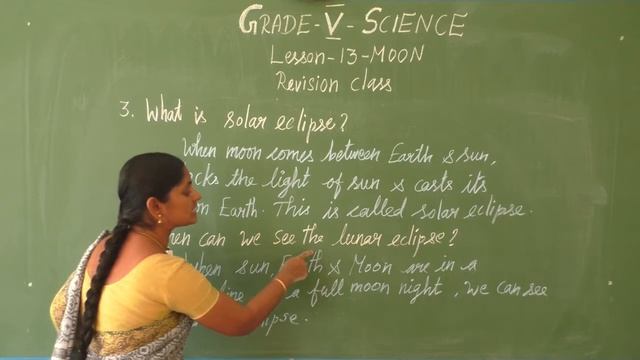 GRADE-V-SCIENCE
Lesson-13-MOON
Revision class
3. What is solar eclipse?
When moon comes between Earth & sun,
the light of sun & casts its
on Earth. This is called solar eclipse.
can we see the lunar eclipse?
When sun, & Moon are in a
a full moon night, we can see